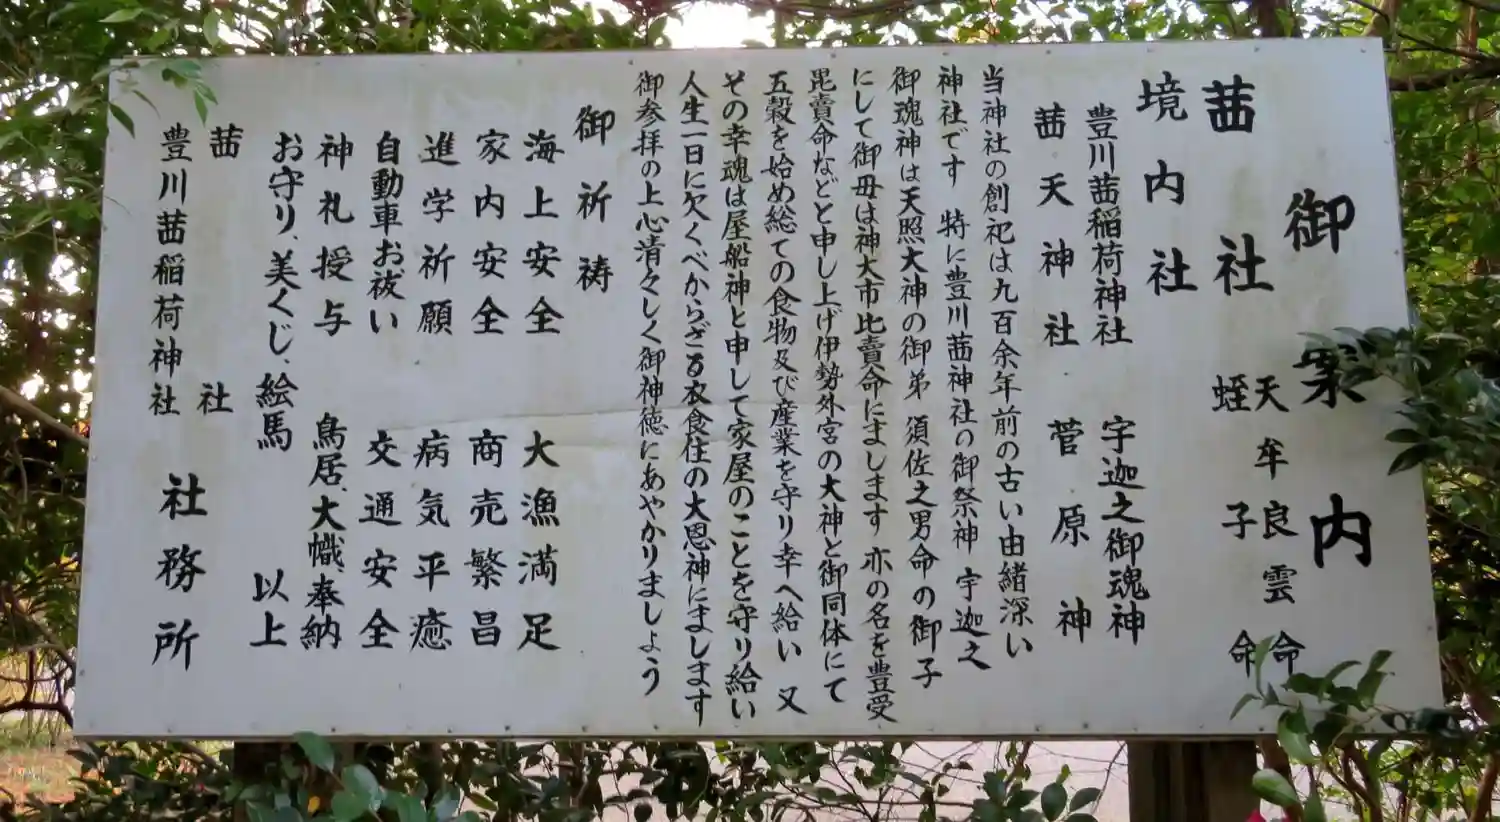 御案内
茜社 天牟良雲命
蛭子命
境内社
豊川茜稲荷神社 宇迦之御魂神
茜天神社 菅原神
当神社の創祀は九百余年前の古い由緒深い
神社です 特に豊川茜神社の御祭神 宇迦之
御魂神は天照大神の御弟 須佐之男命の御子
にして御母は神大市比賣命にまします 亦の名を豊受
毘賣命などと申し上げ伊勢外宮の大神と御同体にて
五穀を始め総ての食物及び産業を守り幸へ給い 又
その幸魂は屋船神と申して家屋のことを守り給い
人生一日に欠くべからざる衣食住の大恩神にまします
御参拝の上心清々しく御神徳にあやかりましょう
御祈祷
海上安全 大漁満足
家内安全 商売繁昌
進学祈願 病気平癒
自動車お祓い 交通安全
神札授与 鳥居、大幟、奉納
お守り、美くじ、絵馬 以上
茜社
豊川茜稲荷神社 社務所